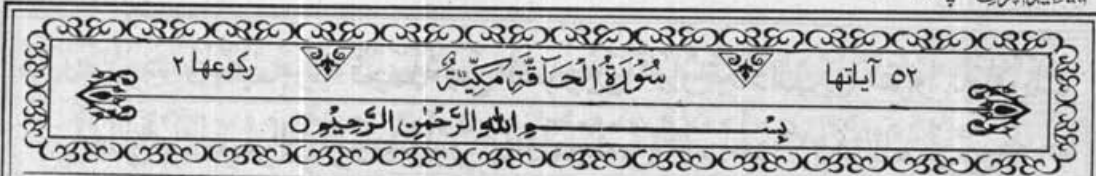 ۵۲ آیاتها سُوْرَةُ الْحَاقَّةِ مَكِّیَّةٌ رکوعها ۲
بِسْمِ اللهِ الرَّحْمٰنِ الرَّحِیْمِ ○